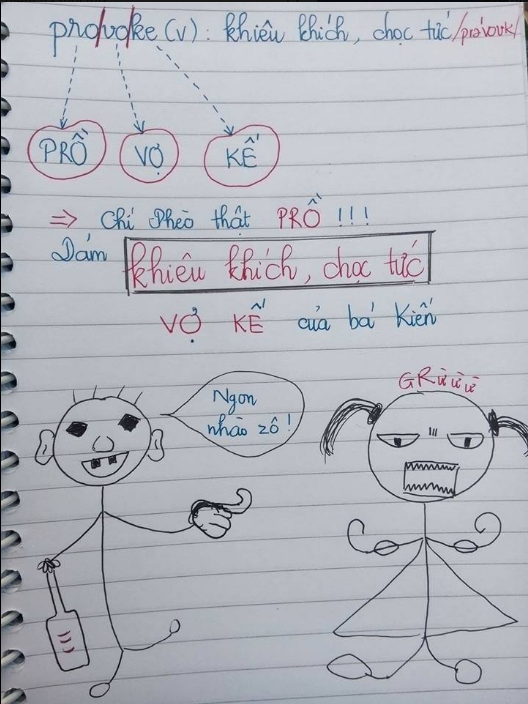 pro/vo/ke (v) : khiêu khích, chọc tức /prə'vouk/
PRỒ VỢ KẾ
=> Chí Phèo thật PRỒ !!!
Dám khiêu khích, chọc tức
VỢ KẾ của bá Kiến
Ngon
nhào zô !
GRừ ừ ừ